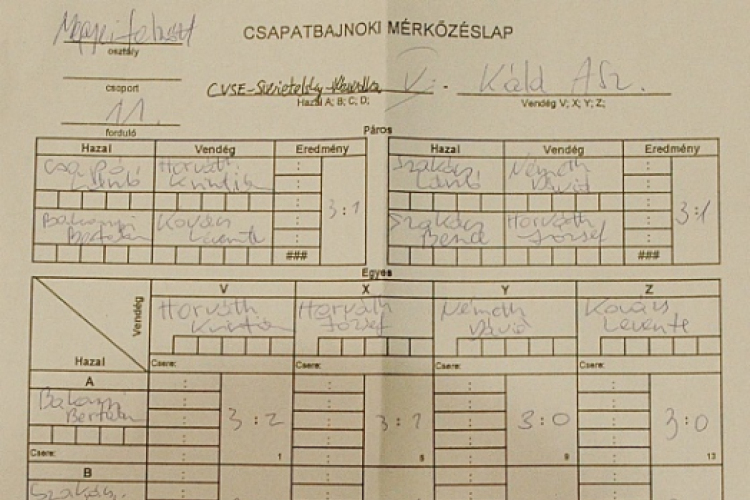 CSAPATBAJNOKI MÉRKŐZÉSLAP
osztály
csoport
11.
forduló
CVSE-Szerietelsky-
Hazai A; B; C; D;
V.
Káld ASz.
Vendég V; X; Y; Z;
Páros
Hazai Vendég Eredmény
Csapó László
Horváth Krisztián
Bakonyi Bertalan
Kovács Levente
3:1
###
Hazai Vendég Eredmény
Szakács László
Németh Dávid
Szakács Bence
Horváth József
3:1
###
Egyes
Vendég
Hazai
V X Y Z
Horváth Krisztián
Horváth József
Németh Dávid
Kovács Levente
Csere: Csere: Csere: Csere:
A
Bakonyi Bertalan
3:2 3:1 3:0 3:0
Csere: 1 5 9 13
B
Szakács